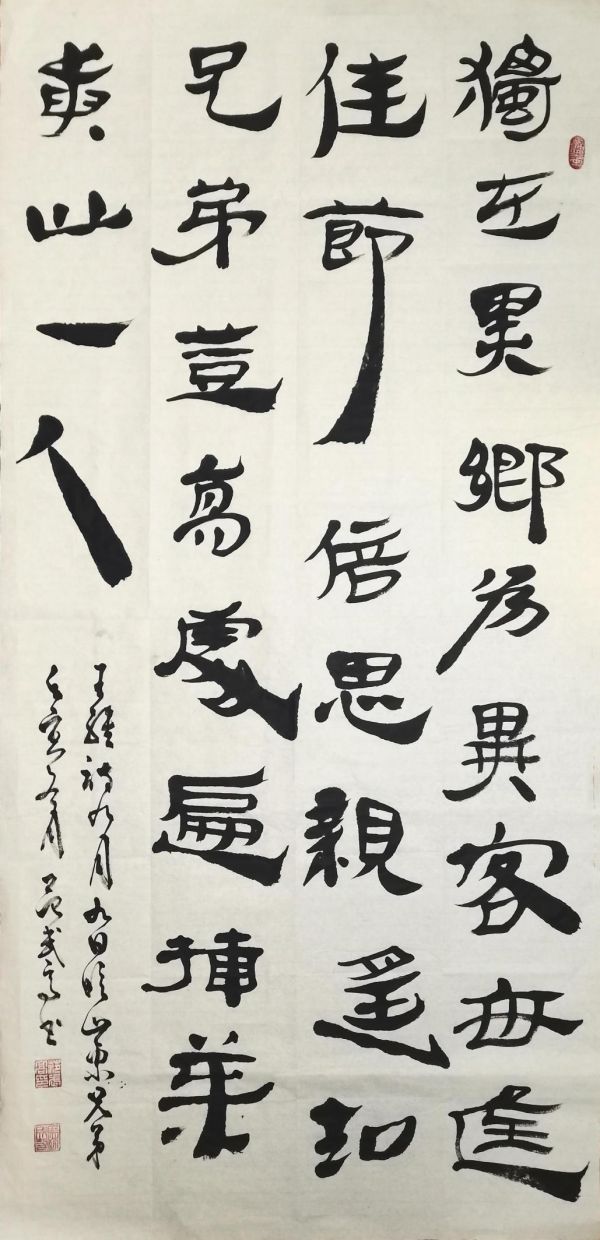 獨在異鄉為異客每逢
佳節倍思親遙知
兄弟登高處遍插茱
萸少一人
王維詩九月九日憶山東兄弟
壬寅冬月范武高书